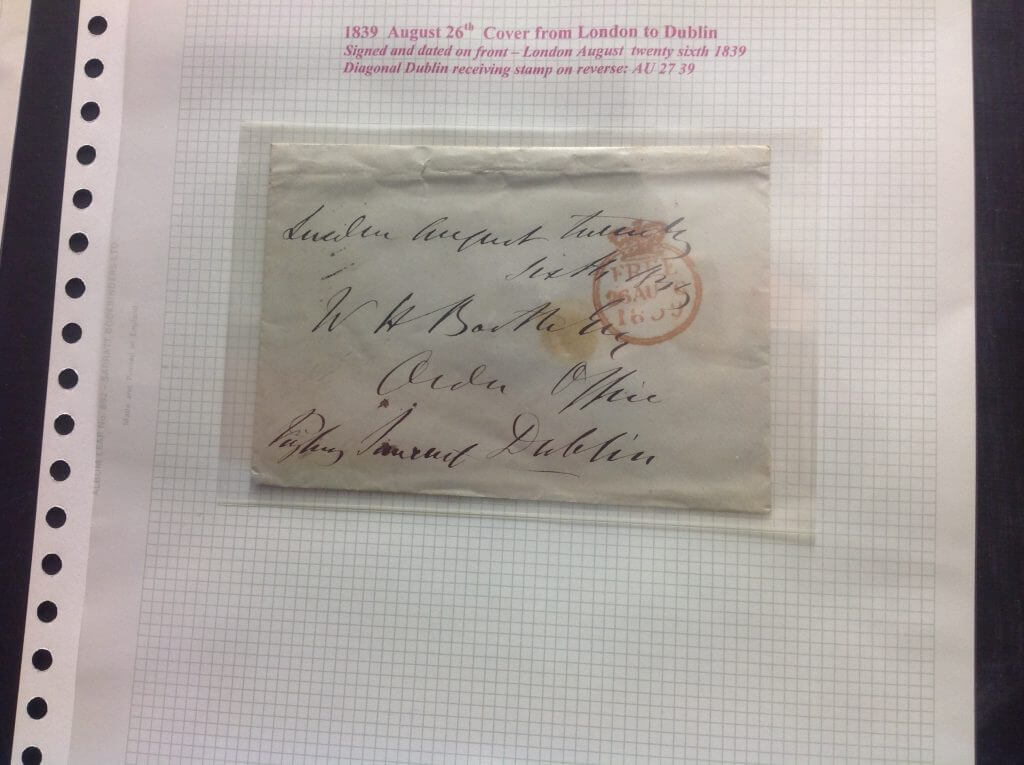 1839 August 26th Cover from London to Dublin
Signed and dated on front – London August twenty sixth 1839
Diagonal Dublin receiving stamp on reverse: AU 27 39
London August twenty
sixth 1839
FREE
26 AU
1839
W H
Order Office
Dublin
ALBUM LEAF No.
Made and Printed in England